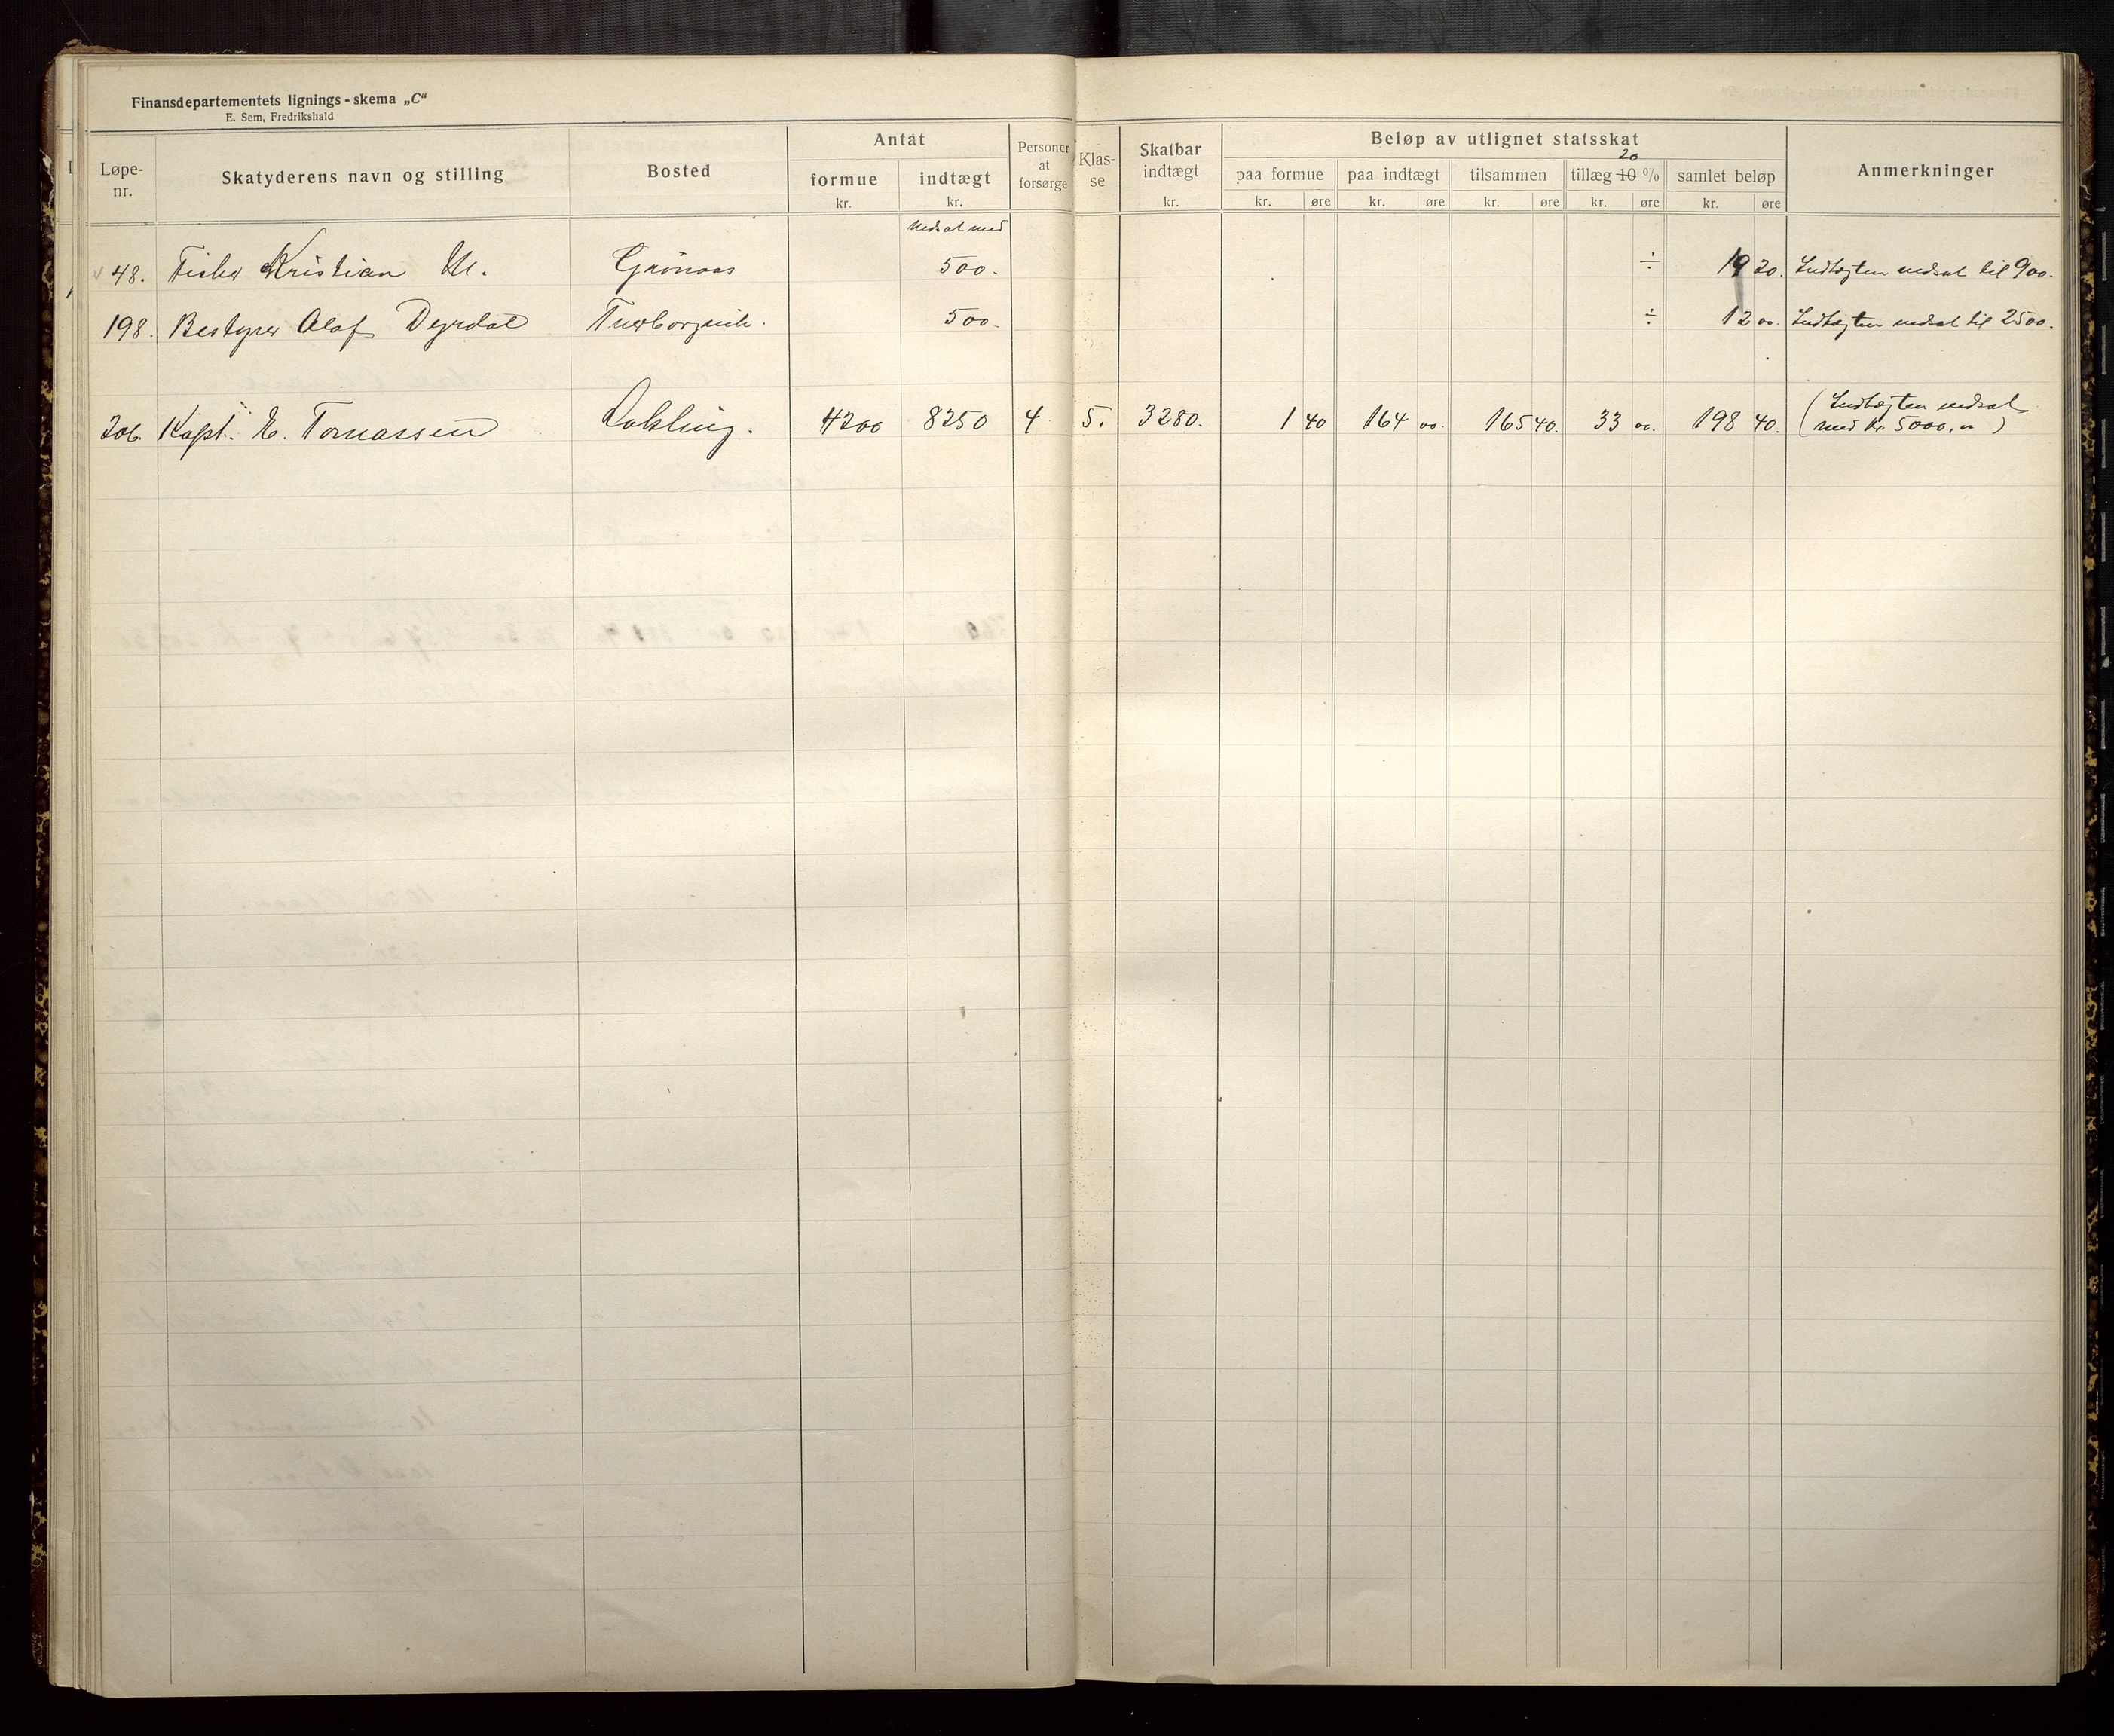 Finansdepartementets lignings-skema „C“
E. Sem, Fredrikshald
Løpe-nr. Skatyderens navn og stilling Bosted Antat formue kr. indtægt kr. Personer at forsørge Klas-se Skatbar indtægt kr. Beløp av utlignet statsskat paa formue kr. øre paa indtægt kr. øre tilsammen kr. øre tillæg 10 20 % kr. øre samlet beløp kr. øre Anmerkninger
Nedsat med
48. Fisker Kristian M. Grönaas 500. ÷ 19 20. Indtægten nedsat til 900.
198. Bestyrer Olaf Dyrdal 500. ÷ 12 00. Indtægten nedsat til 2500.
206. Kapt. E. Tomassen 4200 8250 4 5. 3280. 1 40 164 00. 165 40. 33 00. 198 40. (Indtægten nedsat
med kr. 5000,00)